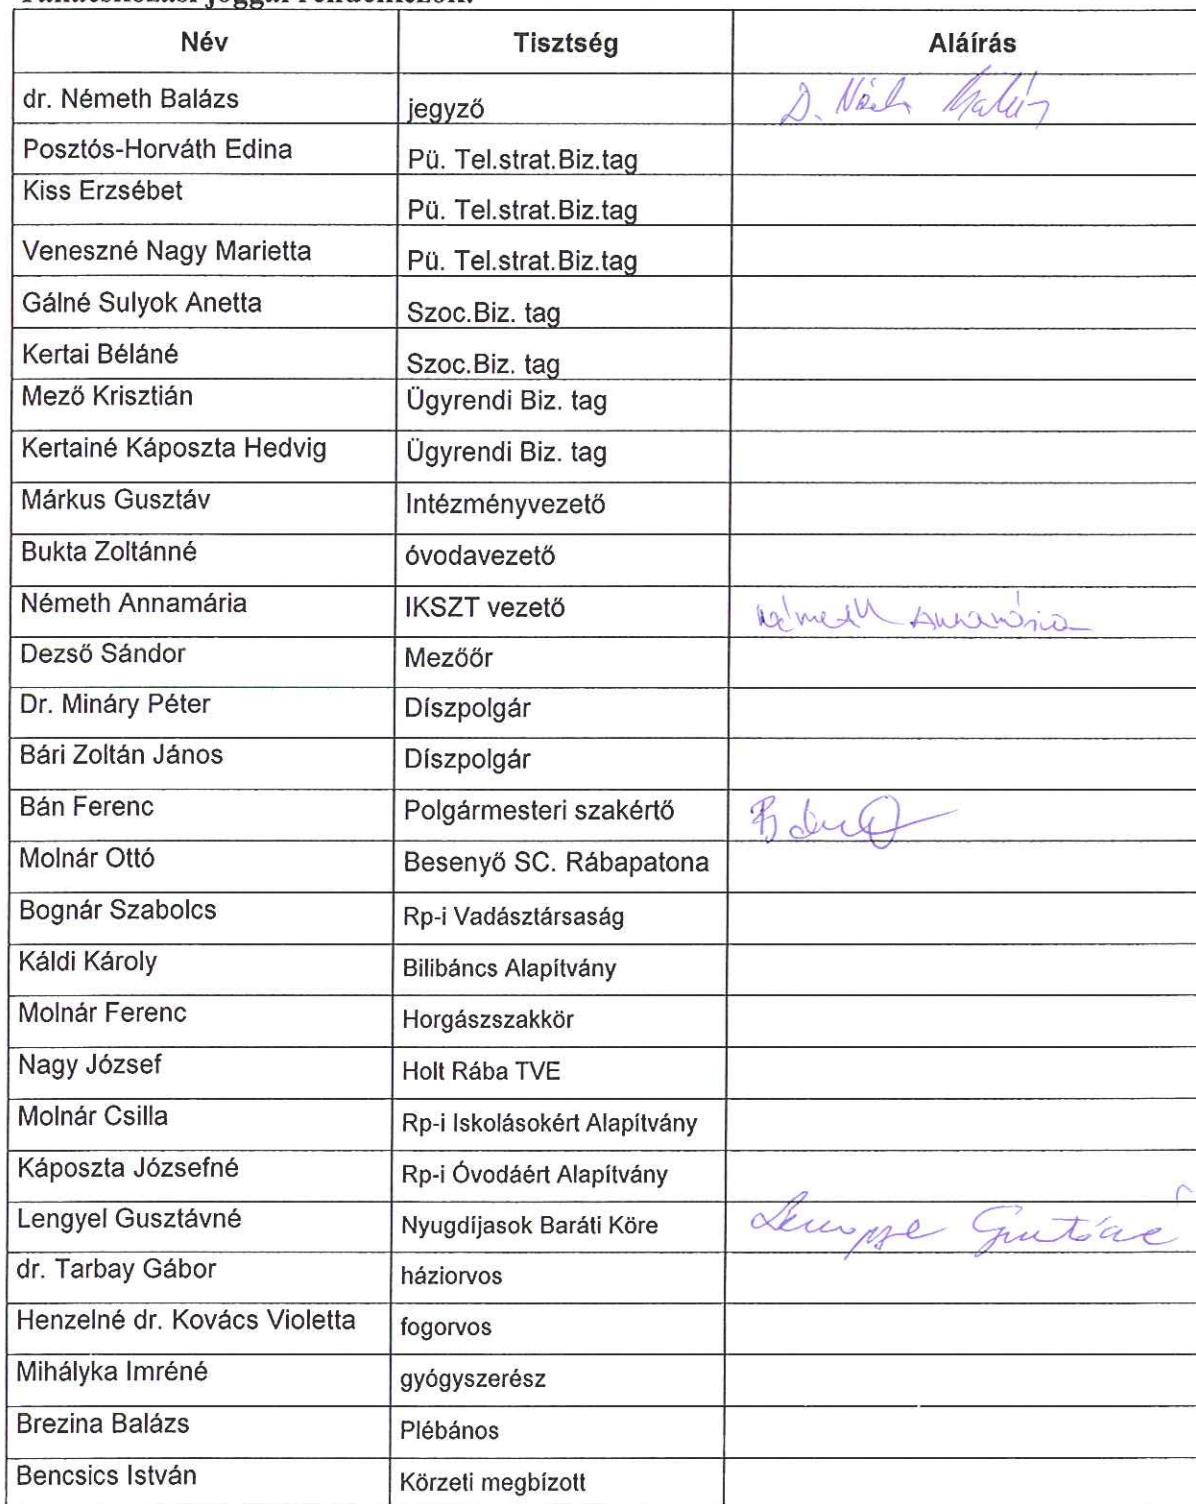 Tanácskozási joggal rendelkezők:
Név Tisztség Aláírás
dr. Németh Balázs jegyző D. Németh Balázs
Posztós-Horváth Edina Pü. Tel.strat.Biz.tag
Kiss Erzsébet Pü. Tel.strat.Biz.tag
Veneszné Nagy Marietta Pü. Tel.strat.Biz.tag
Gálné Sulyok Anetta Szoc.Biz. tag
Kertai Béláné Szoc.Biz. tag
Mező Krisztián Ügyrendi Biz. tag
Kertainé Káposzta Hedvig Ügyrendi Biz. tag
Márkus Gusztáv Intézményvezető
Bukta Zoltánné óvodavezető
Németh Annamária IKSZT vezető Németh Annamária
Dezső Sándor Mezőőr
Dr. Mináry Péter Díszpolgár
Bári Zoltán János Díszpolgár
Bán Ferenc Polgármesteri szakértő
Molnár Ottó Besenyő SC. Rábapatona
Bognár Szabolcs Rp-i Vadásztársaság
Káldi Károly Bilibáncs Alapítvány
Molnár Ferenc Horgászszakkör
Nagy József Holt Rába TVE
Molnár Csilla Rp-i Iskolásokért Alapítvány
Káposzta Józsefné Rp-i Óvodáért Alapítvány
Lengyel Gusztávné Nyugdíjasok Baráti Köre Lengyel Gusztávné
dr. Tarbay Gábor háziorvos
Henzelné dr. Kovács Violetta fogorvos
Mihályka Imréné gyógyszerész
Brezina Balázs Plébános
Bencsics István Körzeti megbízott